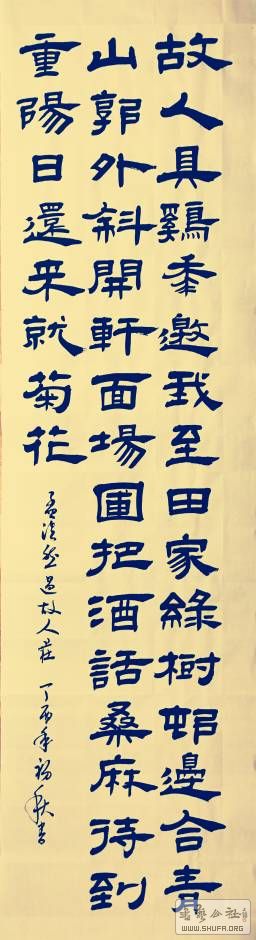 故人具鷄黍邀我至田家綠樹邨邊合青
山郭外斜開軒面場圃把酒話桑麻待到
重陽日還来就菊花
孟浩然過故人莊 丁酉年初秋書
書藝公社
WWW.SHUFA.ORG